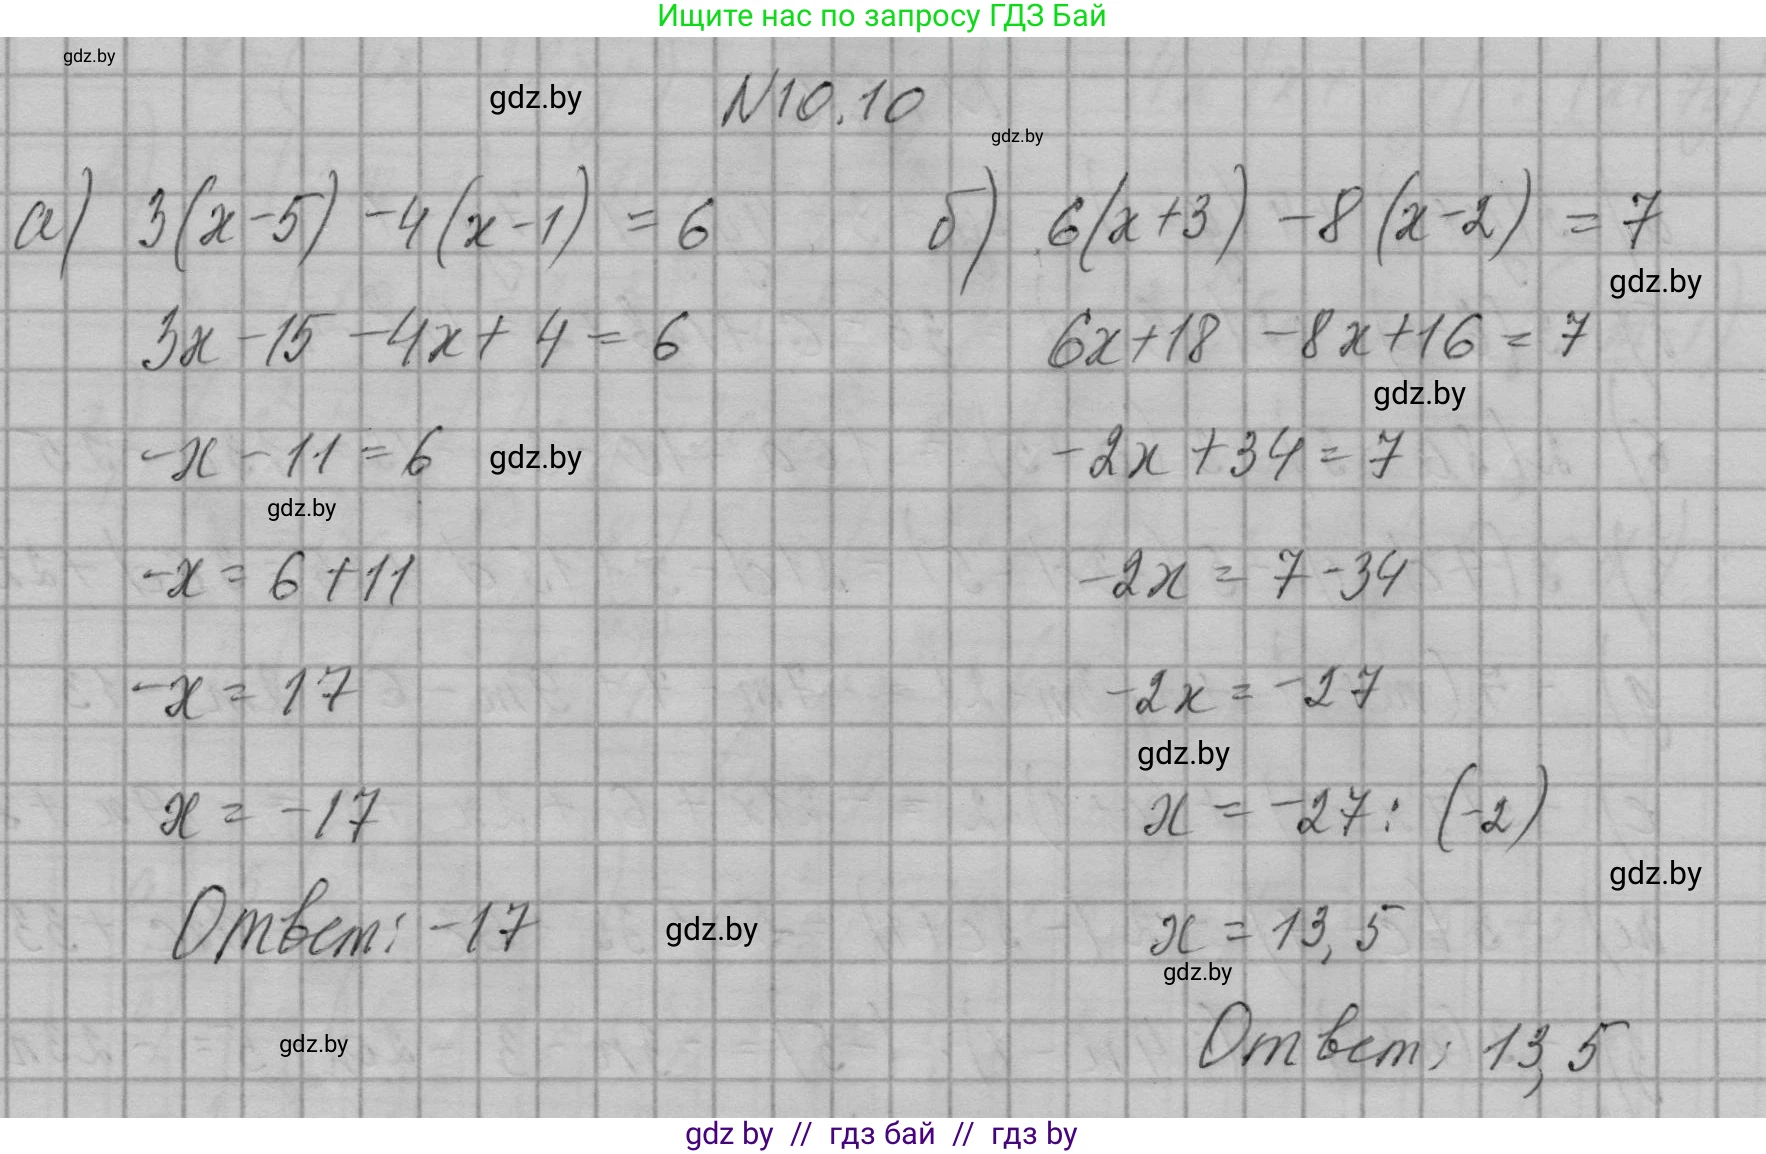 Ищите нас по запросу ГДЗ Бай
gdz.by
gdz.by
N10.10
gdz.by
а) 3(x-5) -4(x-1) = 6
3x-15 -4x+4 = 6
-x-11 = 6
gdz.by
gdz.by
-x = 6+11
-x = 17
x = -17
Ответ: -17
gdz.by
gdz.by
б) 6(x+3) -8(x-2) = 7
gdz.by
6x+18 -8x+16 = 7
gdz.by
-2x+34 = 7
-2x = 7-34
-2x = -27
gdz.by
x = -27 : (-2)
gdz.by
x = 13,5
gdz.by
Ответ: 13,5
gdz by // гдз бай // гдз by